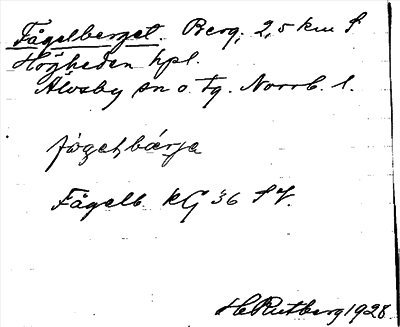 Fågelberget. Berg, 2,5 km S
Högheden hpl.
Älvsby sn o. tg. Norrb. l.
fǫ̀gəḷbǽrjə
Fågelb. KG 36 SV.
H. Rutberg 1928